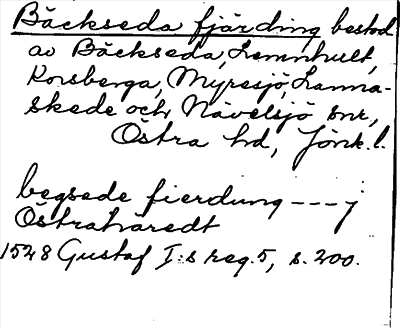 Bäckseda fjärding bestod
av Bäckseda, Lemnhult,
Korsberga, Myresjö, Lanna-
skede och Nävelsjö snr,
Östra hd, Jönk. l.
begsede fierdung --- j
Östrahäredt
1528 Gustaf I:s reg. 5, s. 200.